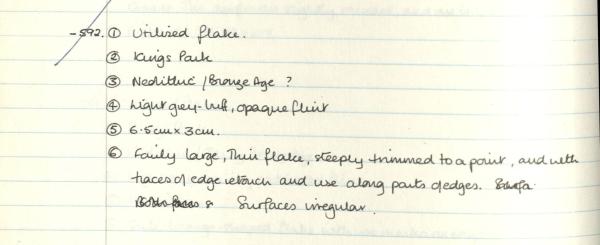 -592. ① Utilised flake.
② Kings Park
③ Neolithic / Bronze Age ?
④ Light grey-buff, opaque flint
⑤ 6.5cm x 3cm.
⑥ Fairly large, Thin flake, steeply trimmed to a point, and with
traces of edge retouch and use along parts of edges.
Surfaces irregular.